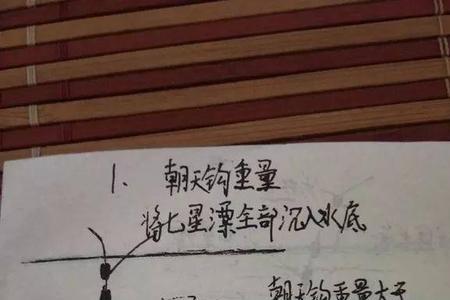 1、朝天钩重量
将七星漂全部沉入水底
朝天钩重量大于